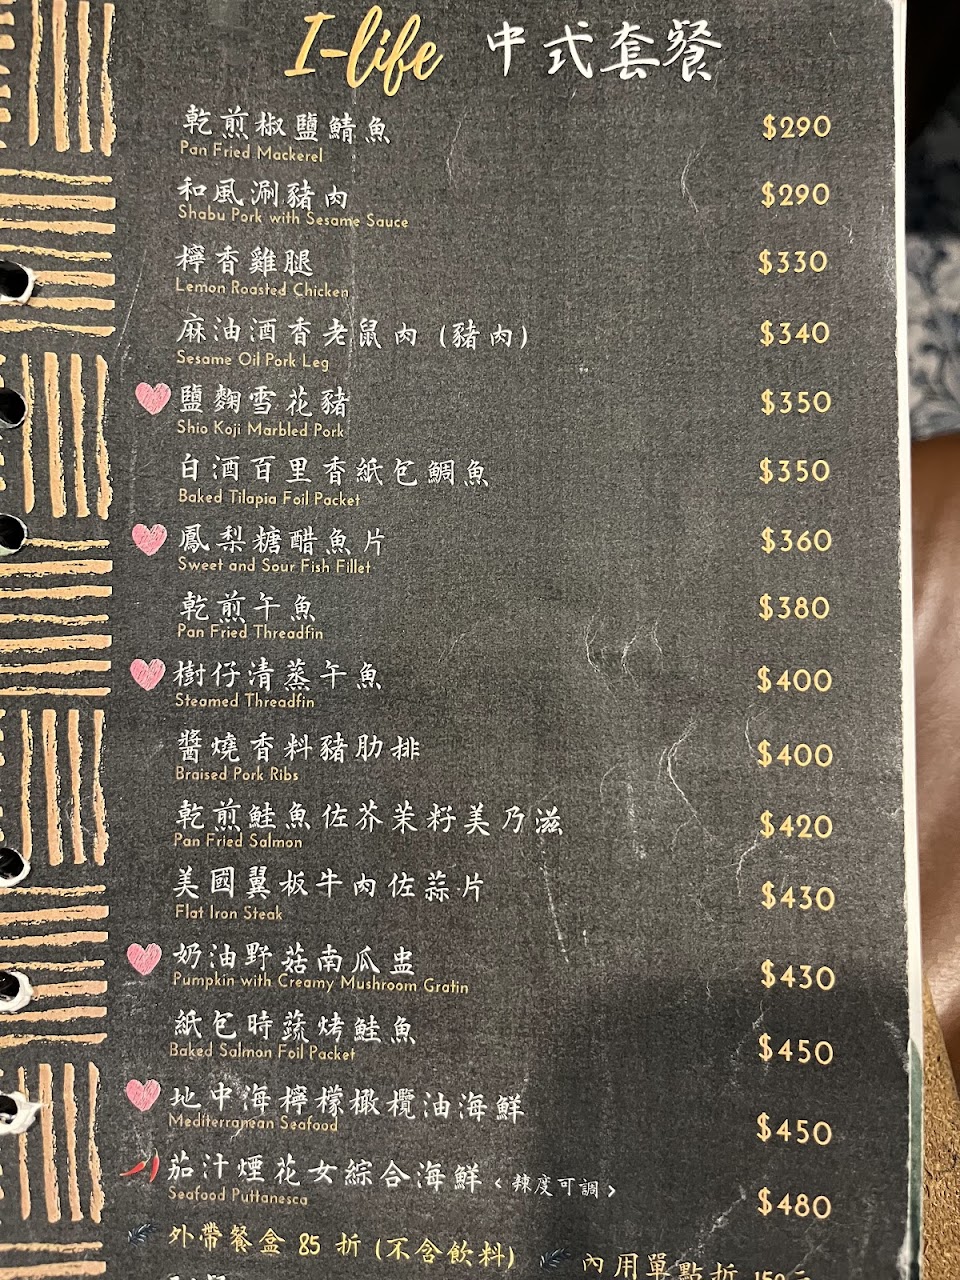 I-life 中式套餐
乾煎椒鹽鯖魚 $290
Pan Fried Mackerel
和風涮豬肉 $290
Shabu Pork with Sesame Sauce
檸香雞腿 $330
Lemon Roasted Chicken
麻油酒香老鼠肉 (豬肉) $340
Sesame Oil Pork Leg
鹽麴雪花豬 $350
Shio Koji Marbled Pork
白酒百里香紙包鯛魚 $350
Baked Tilapia Foil Packet
鳳梨糖醋魚片 $360
Sweet and Sour Fish Fillet
乾煎午魚 $380
Pan Fried Threadfin
樹仔清蒸午魚 $400
Steamed Threadfin
醬燒香料豬肋排 $400
Braised Pork Ribs
乾煎鮭魚佐芥茉籽美乃滋 $420
Pan Fried Salmon
美國翼板牛肉佐蒜片 $430
Flat Iron Steak
奶油野菇南瓜盅 $430
Pumpkin with Creamy Mushroom Gratin
紙包時蔬烤鮭魚 $450
Baked Salmon Foil Packet
地中海檸檬橄欖油海鮮 $450
Mediterranean Seafood
茄汁煙花女綜合海鮮 <辣度可調> $480
Seafood Puttanesca
外帶餐盒 85 折 (不含飲料) 內用單點折 150元